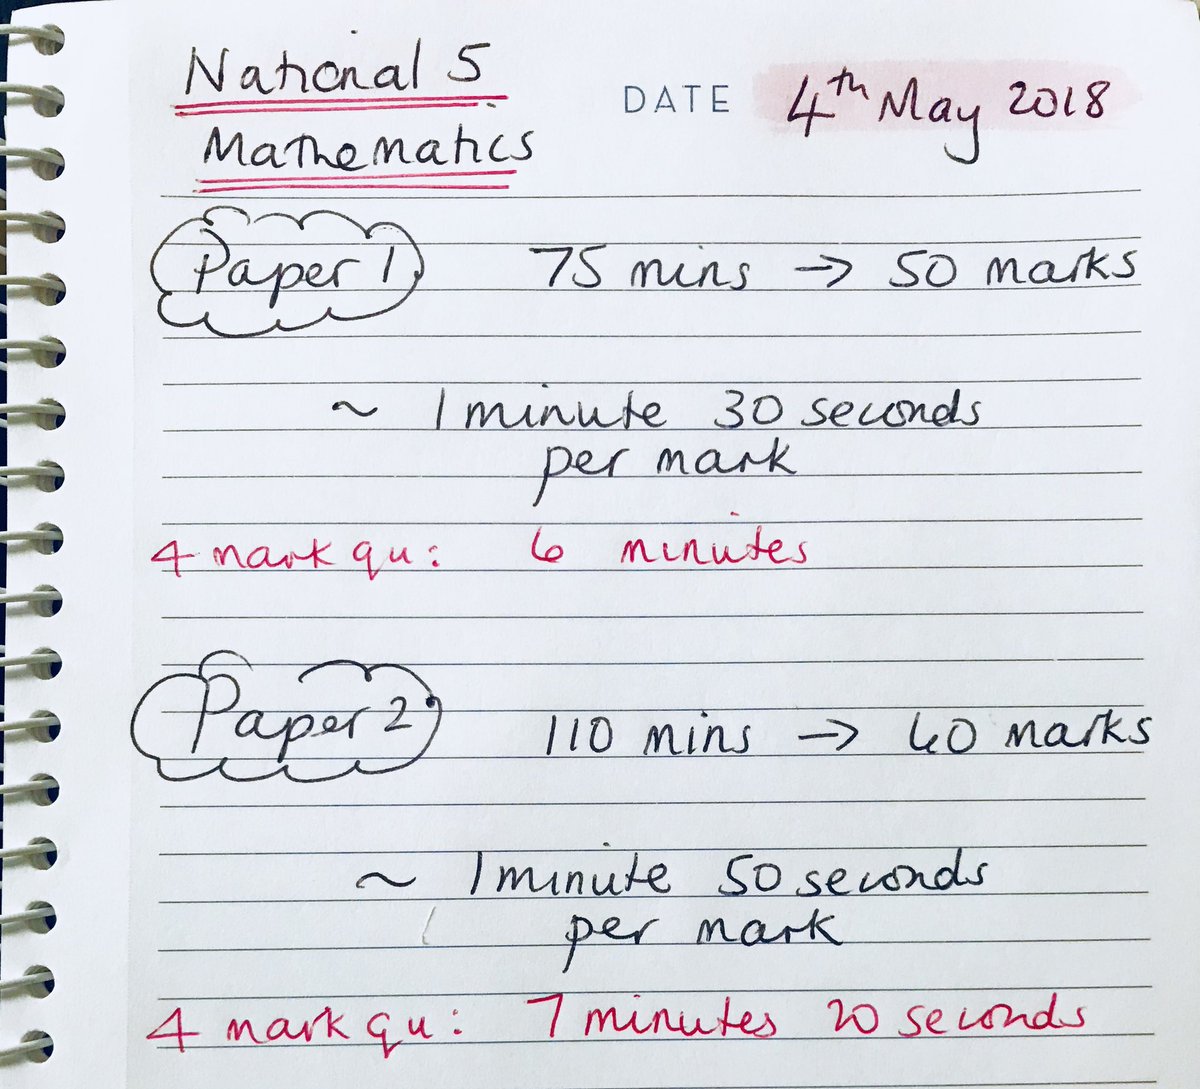 National 5
Mathematics
DATE 4th May 2018
Paper 1 75 mins → 50 marks
~ 1 minute 30 seconds
per mark
4 mark qu: 6 minutes
Paper 2 110 mins → 60 marks
~ 1 minute 50 seconds
per mark
4 mark qu: 7 minutes 20 seconds